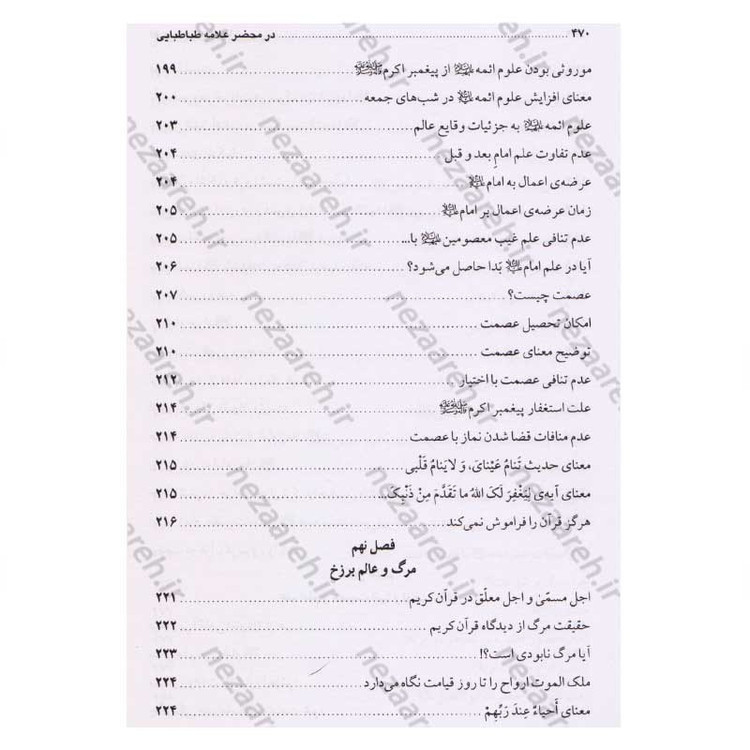 ۴۷۰ در محضر علامه طباطبایی
موروثی بودن علوم ائمه علیهم‌السلام از پیغمبر اکرم صلی‌الله‌علیه‌وآله ۱۹۹
معنای افزایش علوم ائمه علیهم‌السلام در شب‌های جمعه ۲۰۰
علوم ائمه علیهم‌السلام به جزئیات وقایع عالم ۲۰۳
عدم تفاوت علم امام بعد و قبل ۲۰۴
عرضه‌ی اعمال به امام علیه‌السلام ۲۰۴
زمان عرضه‌ی اعمال بر امام علیه‌السلام ۲۰۵
عدم تنافی علم غیب معصومین علیهم‌السلام با... ۲۰۵
آیا در علم امام علیه‌السلام بَدا حاصل می‌شود؟ ۲۰۶
عصمت چیست؟ ۲۰۷
امکان تحصیل عصمت ۲۱۰
توضیح معنای عصمت ۲۱۰
عدم تنافی عصمت با اختیار ۲۱۲
علت استغفار پیغمبر اکرم صلی‌الله‌علیه‌وآله ۲۱۴
عدم منافات قضا شدن نماز با عصمت ۲۱۴
معنای حدیث تَنامُ عَیْنایَ، وَ لا یَنامُ قَلْبی ۲۱۵
معنای آیه‌ی لِیَغْفِرَ لَکَ اللهُ ما تَقَدَّمَ مِنْ ذَنْبِکَ... ۲۱۵
هرگز قرآن را فراموش نمی‌کند ۲۱۶
فصل نهم
مرگ و عالم برزخ
اجل مسمّیٰ و اجل معلّق در قرآن کریم ۲۲۱
حقیقت مرگ از دیدگاه قرآن کریم ۲۲۲
آیا مرگ نابودی است؟! ۲۲۳
ملک الموت ارواح را تا روز قیامت نگاه می‌دارد ۲۲۴
معنای أَحیاءٌ عِندَ رَبِّهِمْ ۲۲۴
nezaareh.ir